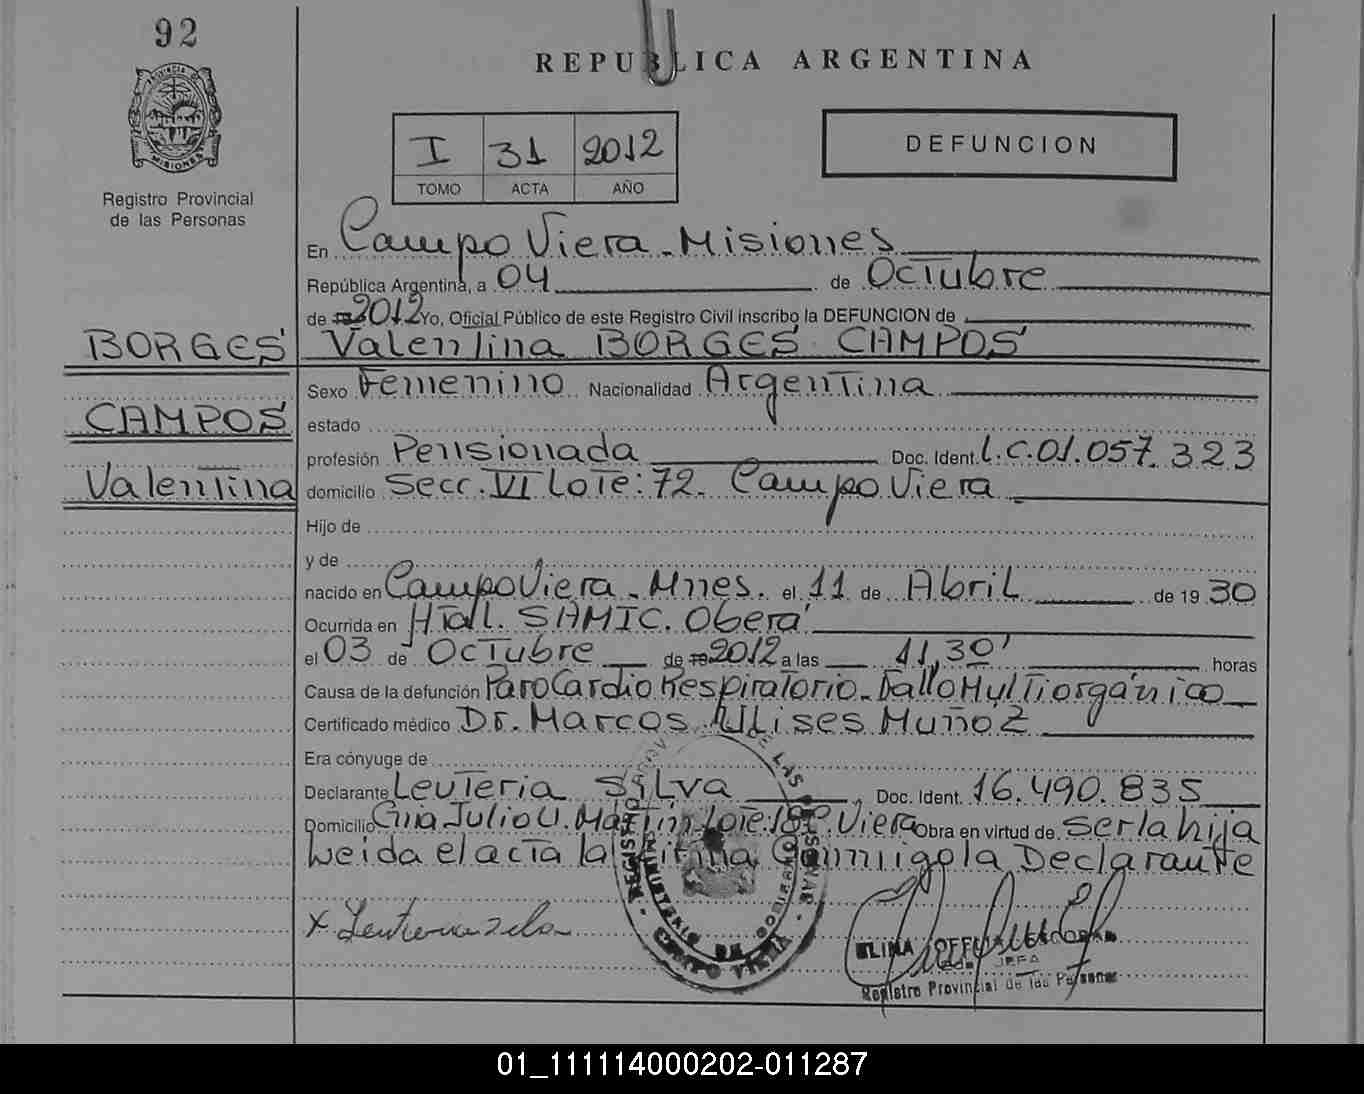 92
REPUBLICA ARGENTINA
I 31 2012
TOMO ACTA AÑO
DEFUNCION
Registro Provincial
de las Personas
En Campo Viera - Misiones
República Argentina, a 04 de Octubre
de 2012 Yo, Oficial Público de este Registro Civil inscribo la DEFUNCION de
BORGES
CAMPOS
Valentina
Valentina BORGES CAMPOS
Sexo Femenino Nacionalidad Argentina
estado
profesión Pensionada Doc. Ident. L.C.01.057.323
domicilio Secc. VI Lote: 72. Campo Viera
Hijo de
y de
nacido en Campo Viera - Mnes. el 11 de Abril de 19 30
Ocurrida en Htal. SAMIC. Oberá
el 03 de Octubre de 2012 a las 11,30' horas
Causa de la defunción Paro Cardio Respiratorio - Fallo Multiorgánico
Certificado médico Dr. Marcos Ulises Muñoz
Era cónyuge de
Declarante Leuteria Silva Doc. Ident. 16.490.835
Domicilio Julio U. Martin Lote: 18 C. Viera Obra en virtud de ser la hija
Leida el acta la firma Conmigo la Declarante
REGISTRO LAS PERSONAS
MINISTERIO DE GOBIERNO
CAMPO VIERA
JEFA
Registro Provincial de las Personas
01_111114000202-011287